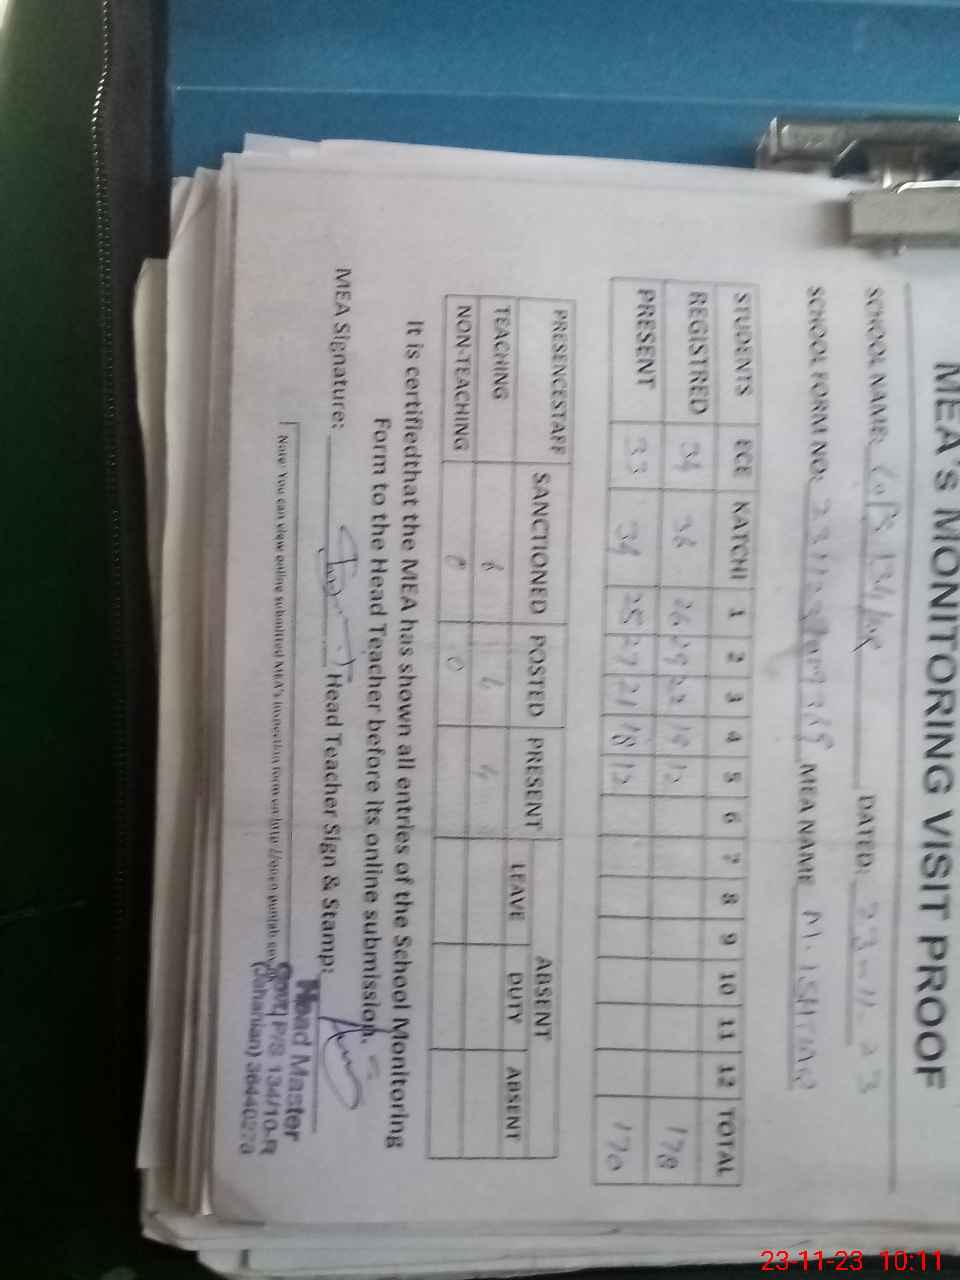 MEA's MONITORING VISIT PROOF
SCHOOL NAME: DATED: 23-11-23
SCHOOL FORM NO: MEA NAME M. ISHTIAQ
STUDENTS ECE KATCHI 1 2 3 4 5 6 7 8 9 10 11 12 TOTAL
REGISTRED 34 36 26 29 22 19 12 178
PRESENT 33 34 25 27 21 18 12 170
PRESENCESTAFF SANCTIONED POSTED PRESENT ABSENT
LEAVE DUTY ABSENT
TEACHING 6 6
NON-TEACHING 0 0
It is certifiedthat the MEA has shown all entries of the School Monitoring
Form to the Head Teacher before its online submission.
MEA Signature: Head Teacher Sign & Stamp:
Head Master
Govt P/S 134/10-R
(Jahanian)
Note: You can view online submitted MEA's inspection form on
23-11-23 10:11